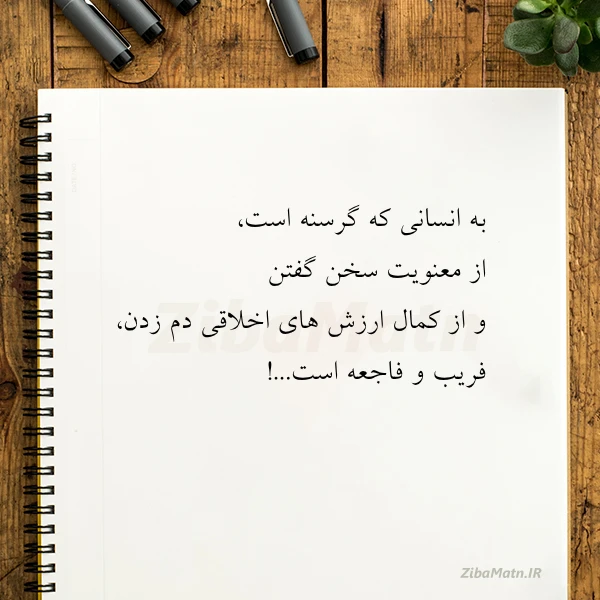 به انسانی که گرسنه است،
از معنویت سخن گفتن
و از کمال ارزش های اخلاقی دم زدن،
فریب و فاجعه است...!
ZibaMatn
ZibaMatn.IR